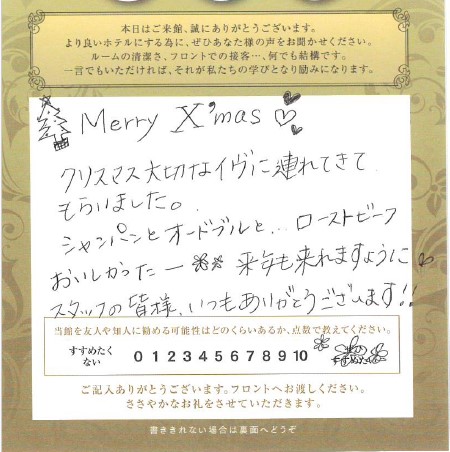 本日はご来館、誠にありがとうございます。
より良いホテルにする為に、ぜひあなた様の声をお聞かせください。
ルームの清潔さ、フロントでの接客…、何でも結構です。
一言でもいただければ、それが私たちの学びとなり励みになります。
Merry X'mas ♡
クリスマス大切なイヴに連れてきて
もらいました。
シャンパンとオードブルと... ローストビーフ
おいしかったー 来年も来れますように
スタッフの皆様、いつもありがとうございます!!
当館を友人や知人に勧める可能性はどのくらいあるか、点数で教えてください。
すすめたく
ない
0 1 2 3 4 5 6 7 8 9 10
すすめたい
ご記入ありがとうございます。フロントへお渡しください。
ささやかなお礼をさせていただきます。
書ききれない場合は裏面へどうぞ